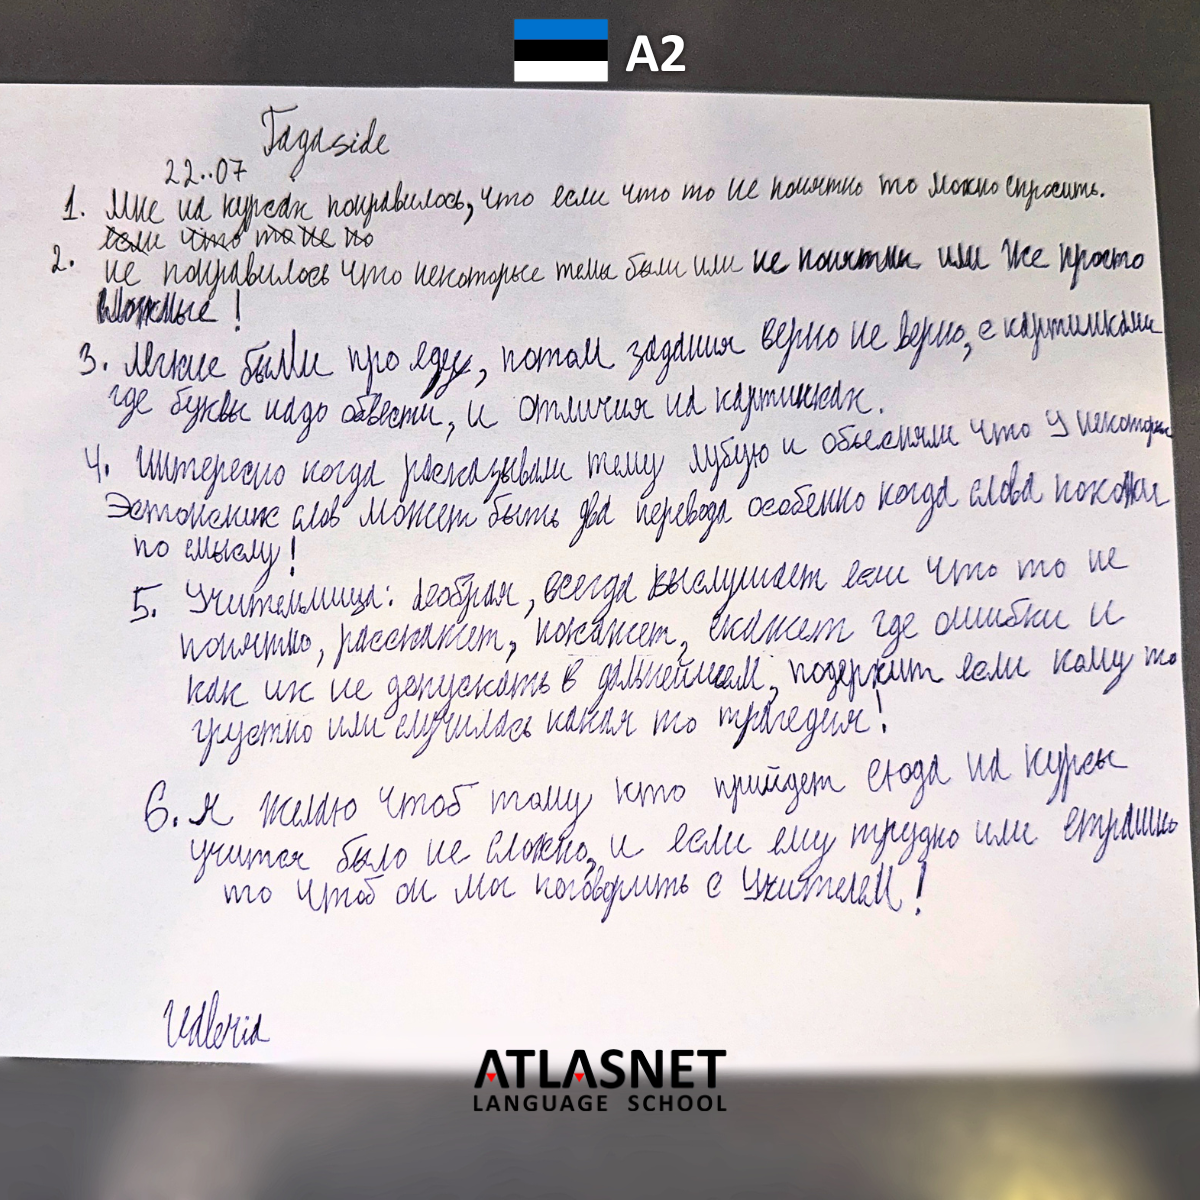 A2
Tagaside
22..07
1. Мне на курсах понравилось, что если что то не понятно то можно спросить.
если что то не по
2. не понравилось что некоторые темы были или не понятны или же просто
сложные!
3. Лёгкие были про еду, потом задания верно не верно, с картинками
где буквы надо обвести, и отличия на картинках.
4. Интересно когда рассказывали тему лубую и обьесняли что у некоторых
Эстонских слов может быть два перевода особенно когда слова похожи
по смыслу!
5. Учительница: добрая, всегда выслушает если что то не
понятно, расскажет, покажет, скажет где ошибки и
как их не допускать в дальнейшем, подержит если кому то
грустно или случилась какая то трагедия!
6. Я желаю чтоб тому кто прийдет сюда на курсы
учится было не сложно, и если ему трудно или страшно
то чтоб он мог поговорить с учителем!
Valeria
ATLASNET
LANGUAGE SCHOOL